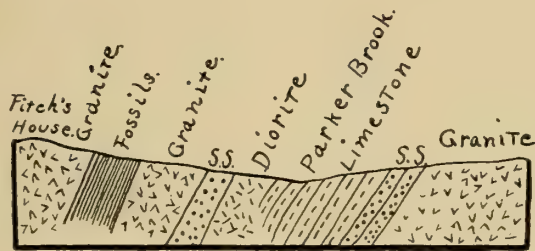 Fitch's
House.
Granite.
Fossils.
Granite.
S.S.
Diorite
Parker Brook.
Limestone
S.S.
Granite